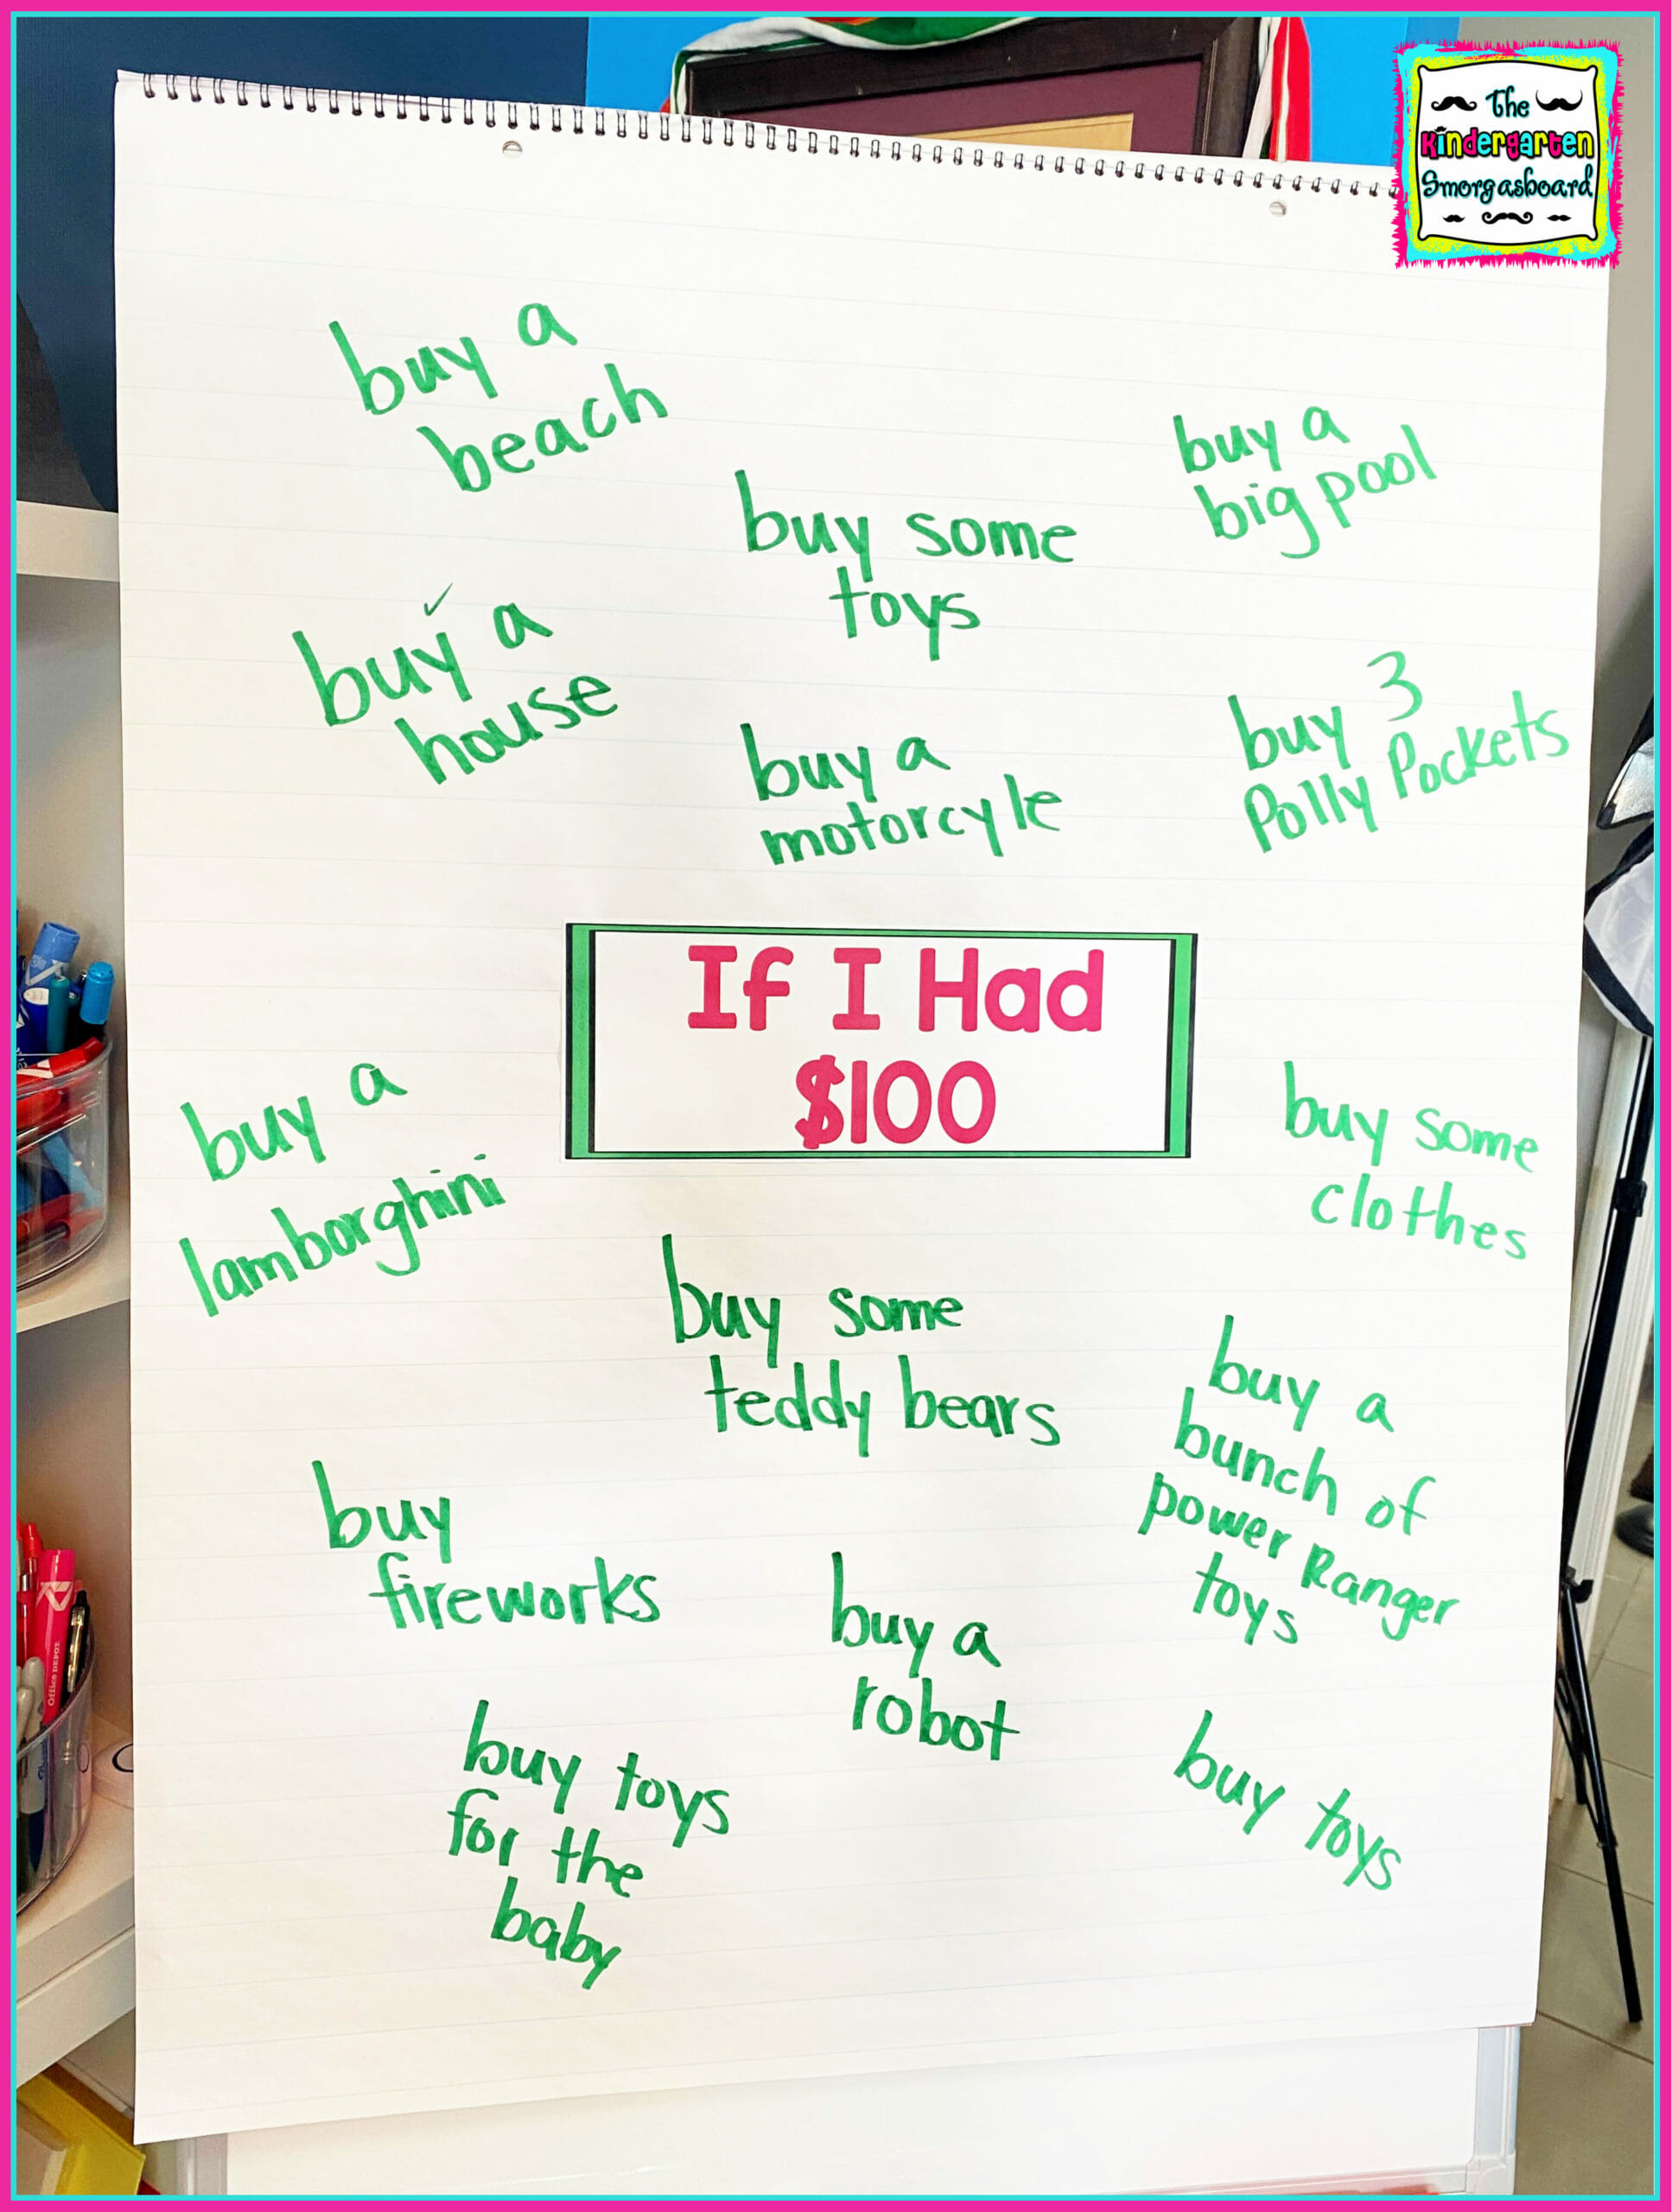 The
Kindergarten
Smorgasboard
buy a
beach
buy some
toys
buy a
big pool
buy a
house
buy a
motorcyle
buy 3
Polly Pockets
If I Had
$100
buy a
lamborghini
buy some
clothes
buy some
teddy bears
buy a
bunch of
power Ranger
toys
buy
fireworks
buy a
robot
buy toys
for the
baby
buy toys
Office DEPOT